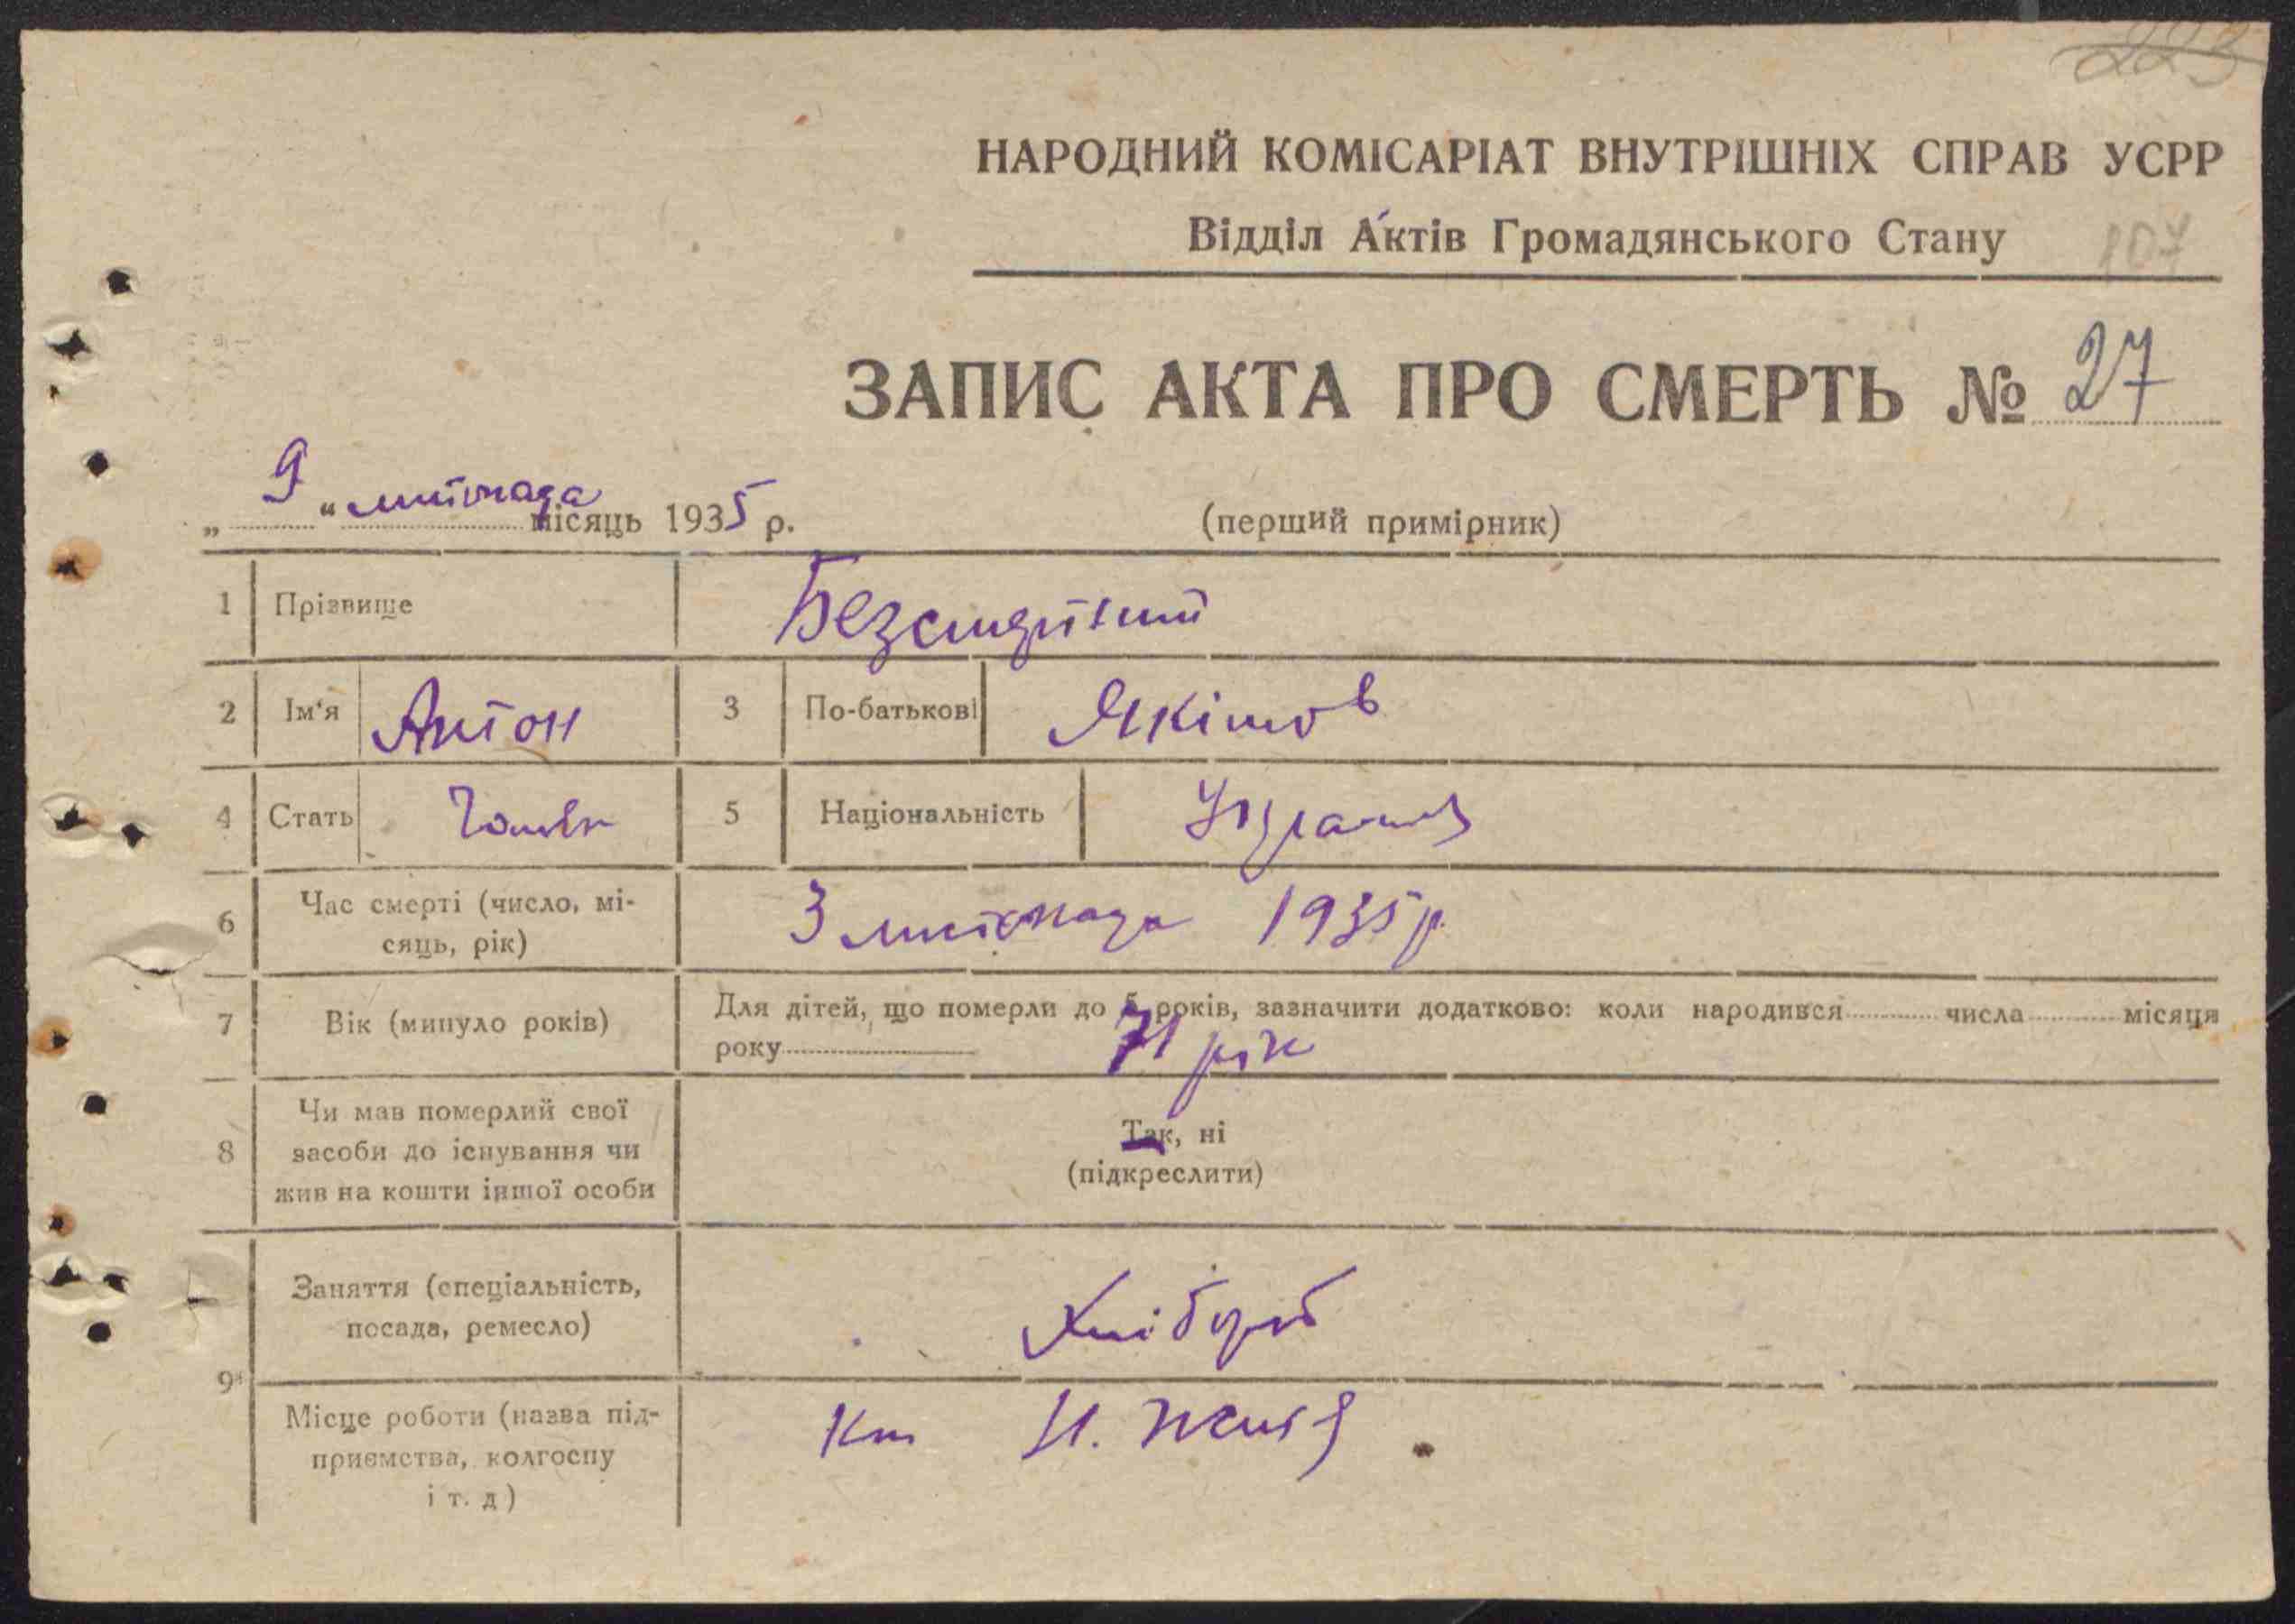 223
НАРОДНИЙ КОМІСАРІАТ ВНУТРІШНІХ СПРАВ УСРР
Відділ Актів Громадянського Стану 107
ЗАПИС АКТА ПРО СМЕРТЬ № 27
„ 9 “ листопада місяць 1935 р. (перший примірник)
1 Прізвище
2 Ім'я Антон 3 По-батькові Якімов
4 Стать Чолов 5 Національність
6 Час смерті (число, мі-
сяць, рік) 3 листопада 1935 р.
7 Вік (минуло років) Для дітей, що померли до 5 років, зазначити додатково: коли народився числа місяця
року 71 рік
8 Чи мав померлий свої
засоби до існування чи
жив на кошти іншої особи
Так, ні
(підкреслити)
9 Заняття (спеціальність,
посада, ремесло) Хлібороб
Місце роботи (назва під-
приємства, колгоспу
і т. д)